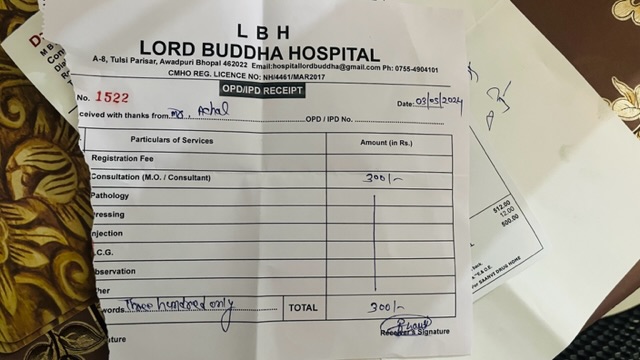 L B H
LORD BUDDHA HOSPITAL
A-8, Tulsi Parisar, Awadpuri Bhopal 462022 Email:hospitallordbuddha@gmail.com Ph: 0755-4904101
CMHO REG. LICENCE NO: NH/4461/MAR2017
OPD/IPD RECEIPT
No. 1522 Date: 03/05/2024
ceived with thanks from Mr. Achal OPD / IPD No.
Particulars of Services Amount (in Rs.)
Registration Fee
Consultation (M.O. / Consultant) 300/-
Pathology
ressing
njection
.C.G.
bservation
ther
words Three hundred only TOTAL 300/-
Receiver's Signature
ature
512.00
12.00
500.00
For SAANVI DRUG HOME